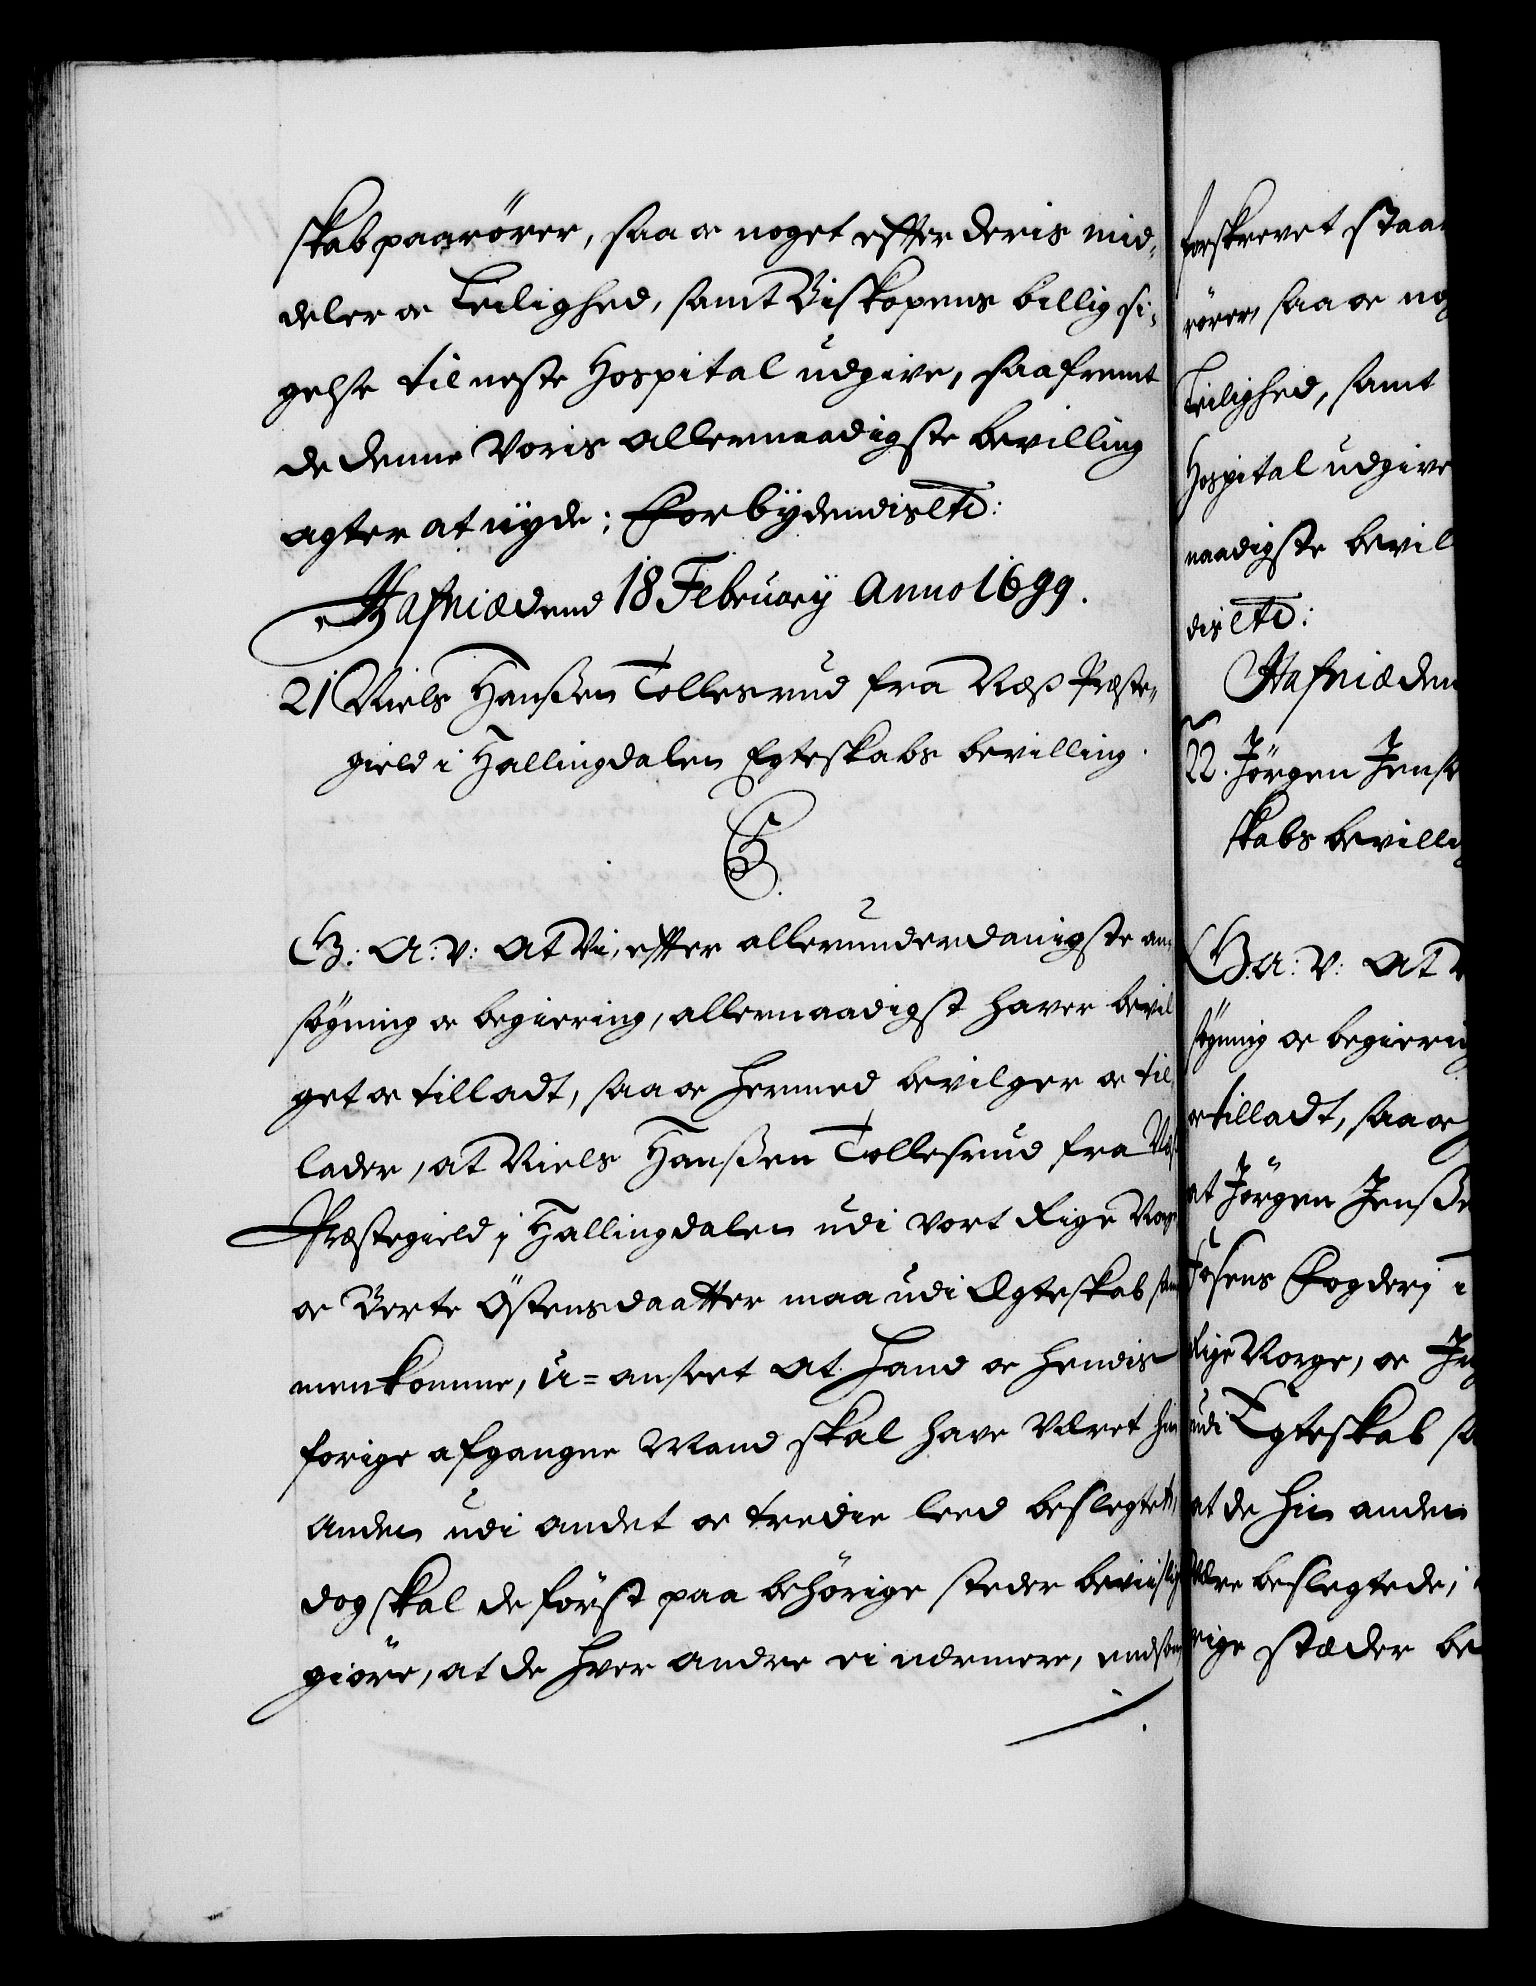 skab paarörer, saa oc noget effter deris mid„
deler oc Leilighed, samt Biskopens billig si„
gelse til neste Hospital udgive, saafremt
de denne Voris allernaadigste bevilling
agter at nyde; Forbydendis etc:
Hafniæ dend 18 February Anno 1699.
21 Niels Hanßen Tollesrud fra Næß Præste„
gield i Hallingdalen Egteskabs bevilling.
G. A: V: At Vi, effter allerunderdanigste an„
søgning oc begiering, allernaadigst haver bevil
get oc tilladt, saa oc hermed bevilger oc til
lader, at Niels Hanßen Tollesrud fra Næß
Præstegield i Hallingdalen udi vort Rige Norge
oc Berte Östensdaatter maa udi Ægteskab sam
menkomme, U=anseet at hand oc hendis
forige afgangne Mand skal have Været hin
anden udi andet oc tredie leed beslegtet,
dog skal de först paa behörige steder beviislig
giöre, at de hver andre ei nærmere, end som
forskrevet staar
rörer, saa oc nog
Leilighed, samt
Hospital udgive
naadigste bevil
dis etc:
Hafniæ den
22. Jörgen Jense
skabs bevillig
G. A: V: At V
søgning oc begiering
oc tilladt, saa oc
at Jörgen Jenße
Fosens Fogderj i
Rige Norge, oc
udi Egteskab sa
at de hin anden
Være beslegtede;
rige stæder be